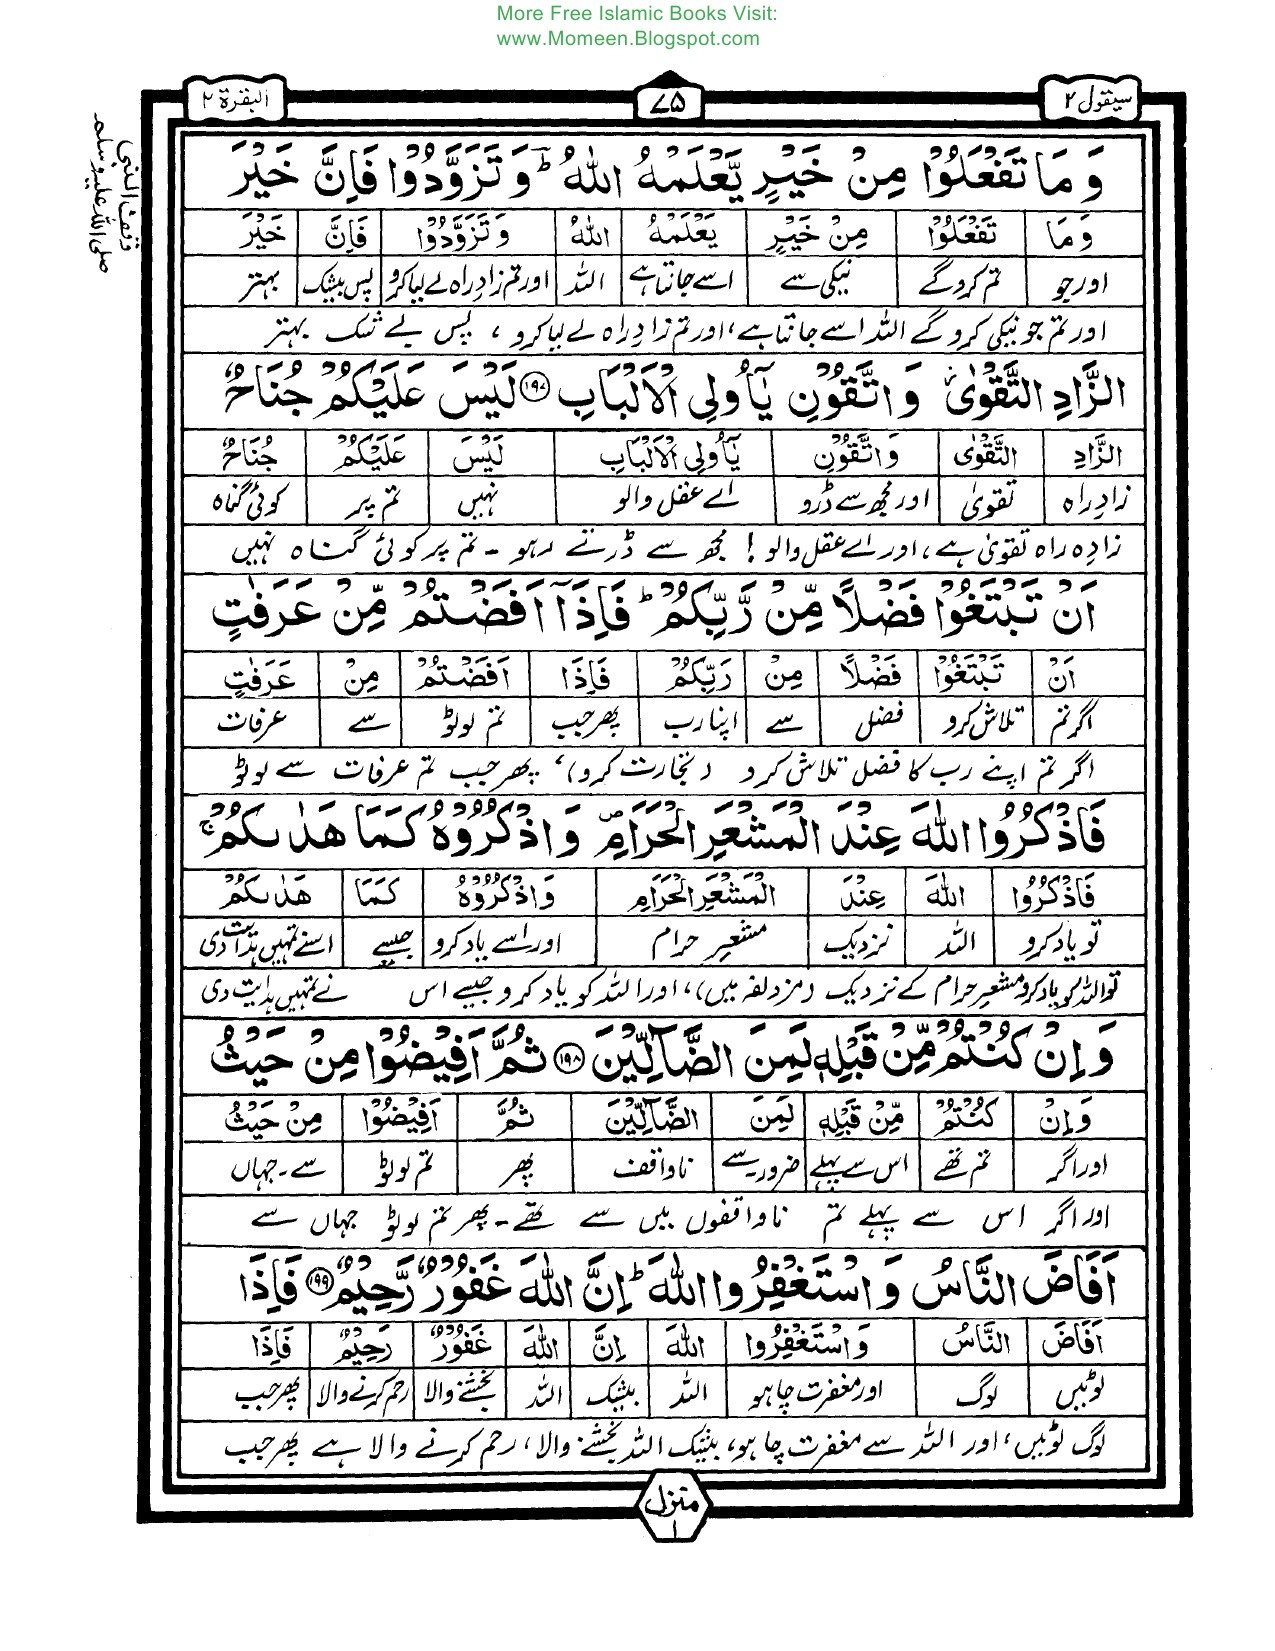 More Free Islamic Books Visit:
www.Momeen.Blogspot.com
سيقول ٢ ٧٥ البقرة ٢
وقف النبی صلی اللہ علیہ وسلم
وَمَا تَفْعَلُوْا مِنْ خَيْرٍ يَّعْلَمْهُ اللّٰهُ ؕ وَتَزَوَّدُوْا فَاِنَّ خَيْرَ
وَمَا تَفْعَلُوْا مِنْ خَيْرٍ يَعْلَمْهُ اللّٰهُ وَتَزَوَّدُوْا فَاِنَّ خَيْرَ
اور جو تم کروگے نیکی سے اسے جانتا ہے اللہ اور تم زادِ راہ لے لیا کرو پس بیشک بہتر
اور تم جو نیکی کرو گے اللہ اسے جانتا ہے، اور تم زادِ راہ لے لیا کرو، پس بے شک بہتر
الزَّادِ التَّقْوٰى ۫ وَاتَّقُوْنِ يٰۤاُولِى الْاَلْبَابِ ١٩٧ لَيْسَ عَلَيْكُمْ جُنَاحٌ
الزَّادِ التَّقْوٰى وَاتَّقُوْنِ يٰۤاُولِى الْاَلْبَابِ لَيْسَ عَلَيْكُمْ جُنَاحٌ
زادِ راہ تقویٰ اور مجھ سے ڈرو اے عقل والو نہیں تم پر کوئی گناہ
زادِ راہ تقویٰ ہے، اور اے عقل والو! مجھ سے ڈرتے رہو - تم پر کوئی گناہ نہیں
اَنْ تَبْتَغُوْا فَضْلًا مِّنْ رَّبِّكُمْ ؕ فَاِذَاۤ اَفَضْتُمْ مِّنْ عَرَفٰتٍ
اَنْ تَبْتَغُوْا فَضْلًا مِنْ رَبِّكُمْ فَاِذَا اَفَضْتُمْ مِنْ عَرَفٰتٍ
اگر تم تلاش کرو فضل سے اپنا رب پھر جب تم لوٹو سے عرفات
اگر تم اپنے رب کا فضل تلاش کرو (تجارت کرو)، پھر جب تم عرفات سے لوٹو
فَاذْكُرُوا اللّٰهَ عِنْدَ الْمَشْعَرِ الْحَرَامِ ۪ وَاذْكُرُوْهُ كَمَا هَدٰىكُمْ ۚ
فَاذْكُرُوْا اللّٰهَ عِنْدَ الْمَشْعَرِ الْحَرَامِ وَاذْكُرُوْهُ كَمَا هَدٰىكُمْ
تو یاد کرو اللہ نزدیک مشعرِ حرام اور اسے یاد کرو جیسے اسنے تمہیں ہدایت دی
تو اللہ کو یاد کرو مشعرِ حرام کے نزدیک (مزدلفہ میں)، اور اللہ کو یاد کرو جیسے اس نے تمہیں ہدایت دی
وَاِنْ كُنْتُمْ مِّنْ قَبْلِهٖ لَمِنَ الضَّآلِّيْنَ ١٩٨ ثُمَّ اَفِيْضُوْا مِنْ حَيْثُ
وَاِنْ كُنْتُمْ مِّنْ قَبْلِهٖ لَمِنَ الضَّآلِّيْنَ ثُمَّ اَفِيْضُوْا مِنْ حَيْثُ
اور اگر تم تھے اس سے پہلے ضرور سے ناواقف پھر تم لوٹو سے - جہاں
اور اگر اس سے پہلے تم ناواقفوں میں سے تھے - پھر تم لوٹو جہاں سے
اَفَاضَ النَّاسُ وَاسْتَغْفِرُوا اللّٰهَ ؕ اِنَّ اللّٰهَ غَفُوْرٌ رَّحِيْمٌ ١٩٩ فَاِذَا
اَفَاضَ النَّاسُ وَاسْتَغْفِرُوْا اللّٰهَ اِنَّ اللّٰهَ غَفُوْرٌ رَحِيْمٌ فَاِذَا
لوٹیں لوگ اور مغفرت چاہو اللہ بیشک اللہ بخشنے والا رحم کرنے والا پھر جب
لوگ لوٹیں، اور اللہ سے مغفرت چاہو، بیشک اللہ بخشنے والا، رحم کرنے والا ہے پھر جب
منزل ١